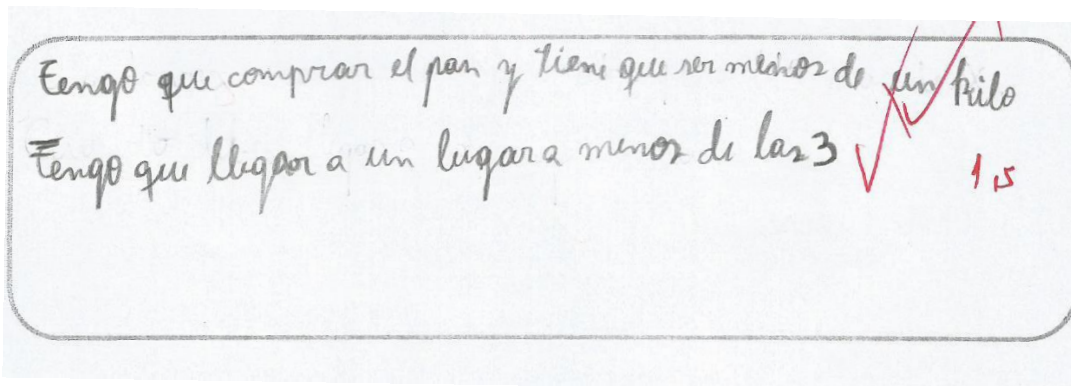 Tengo que comprar el pan y tiene que ser menos de un kilo
Tengo que llegar a un lugar a menos de las 3
1,5